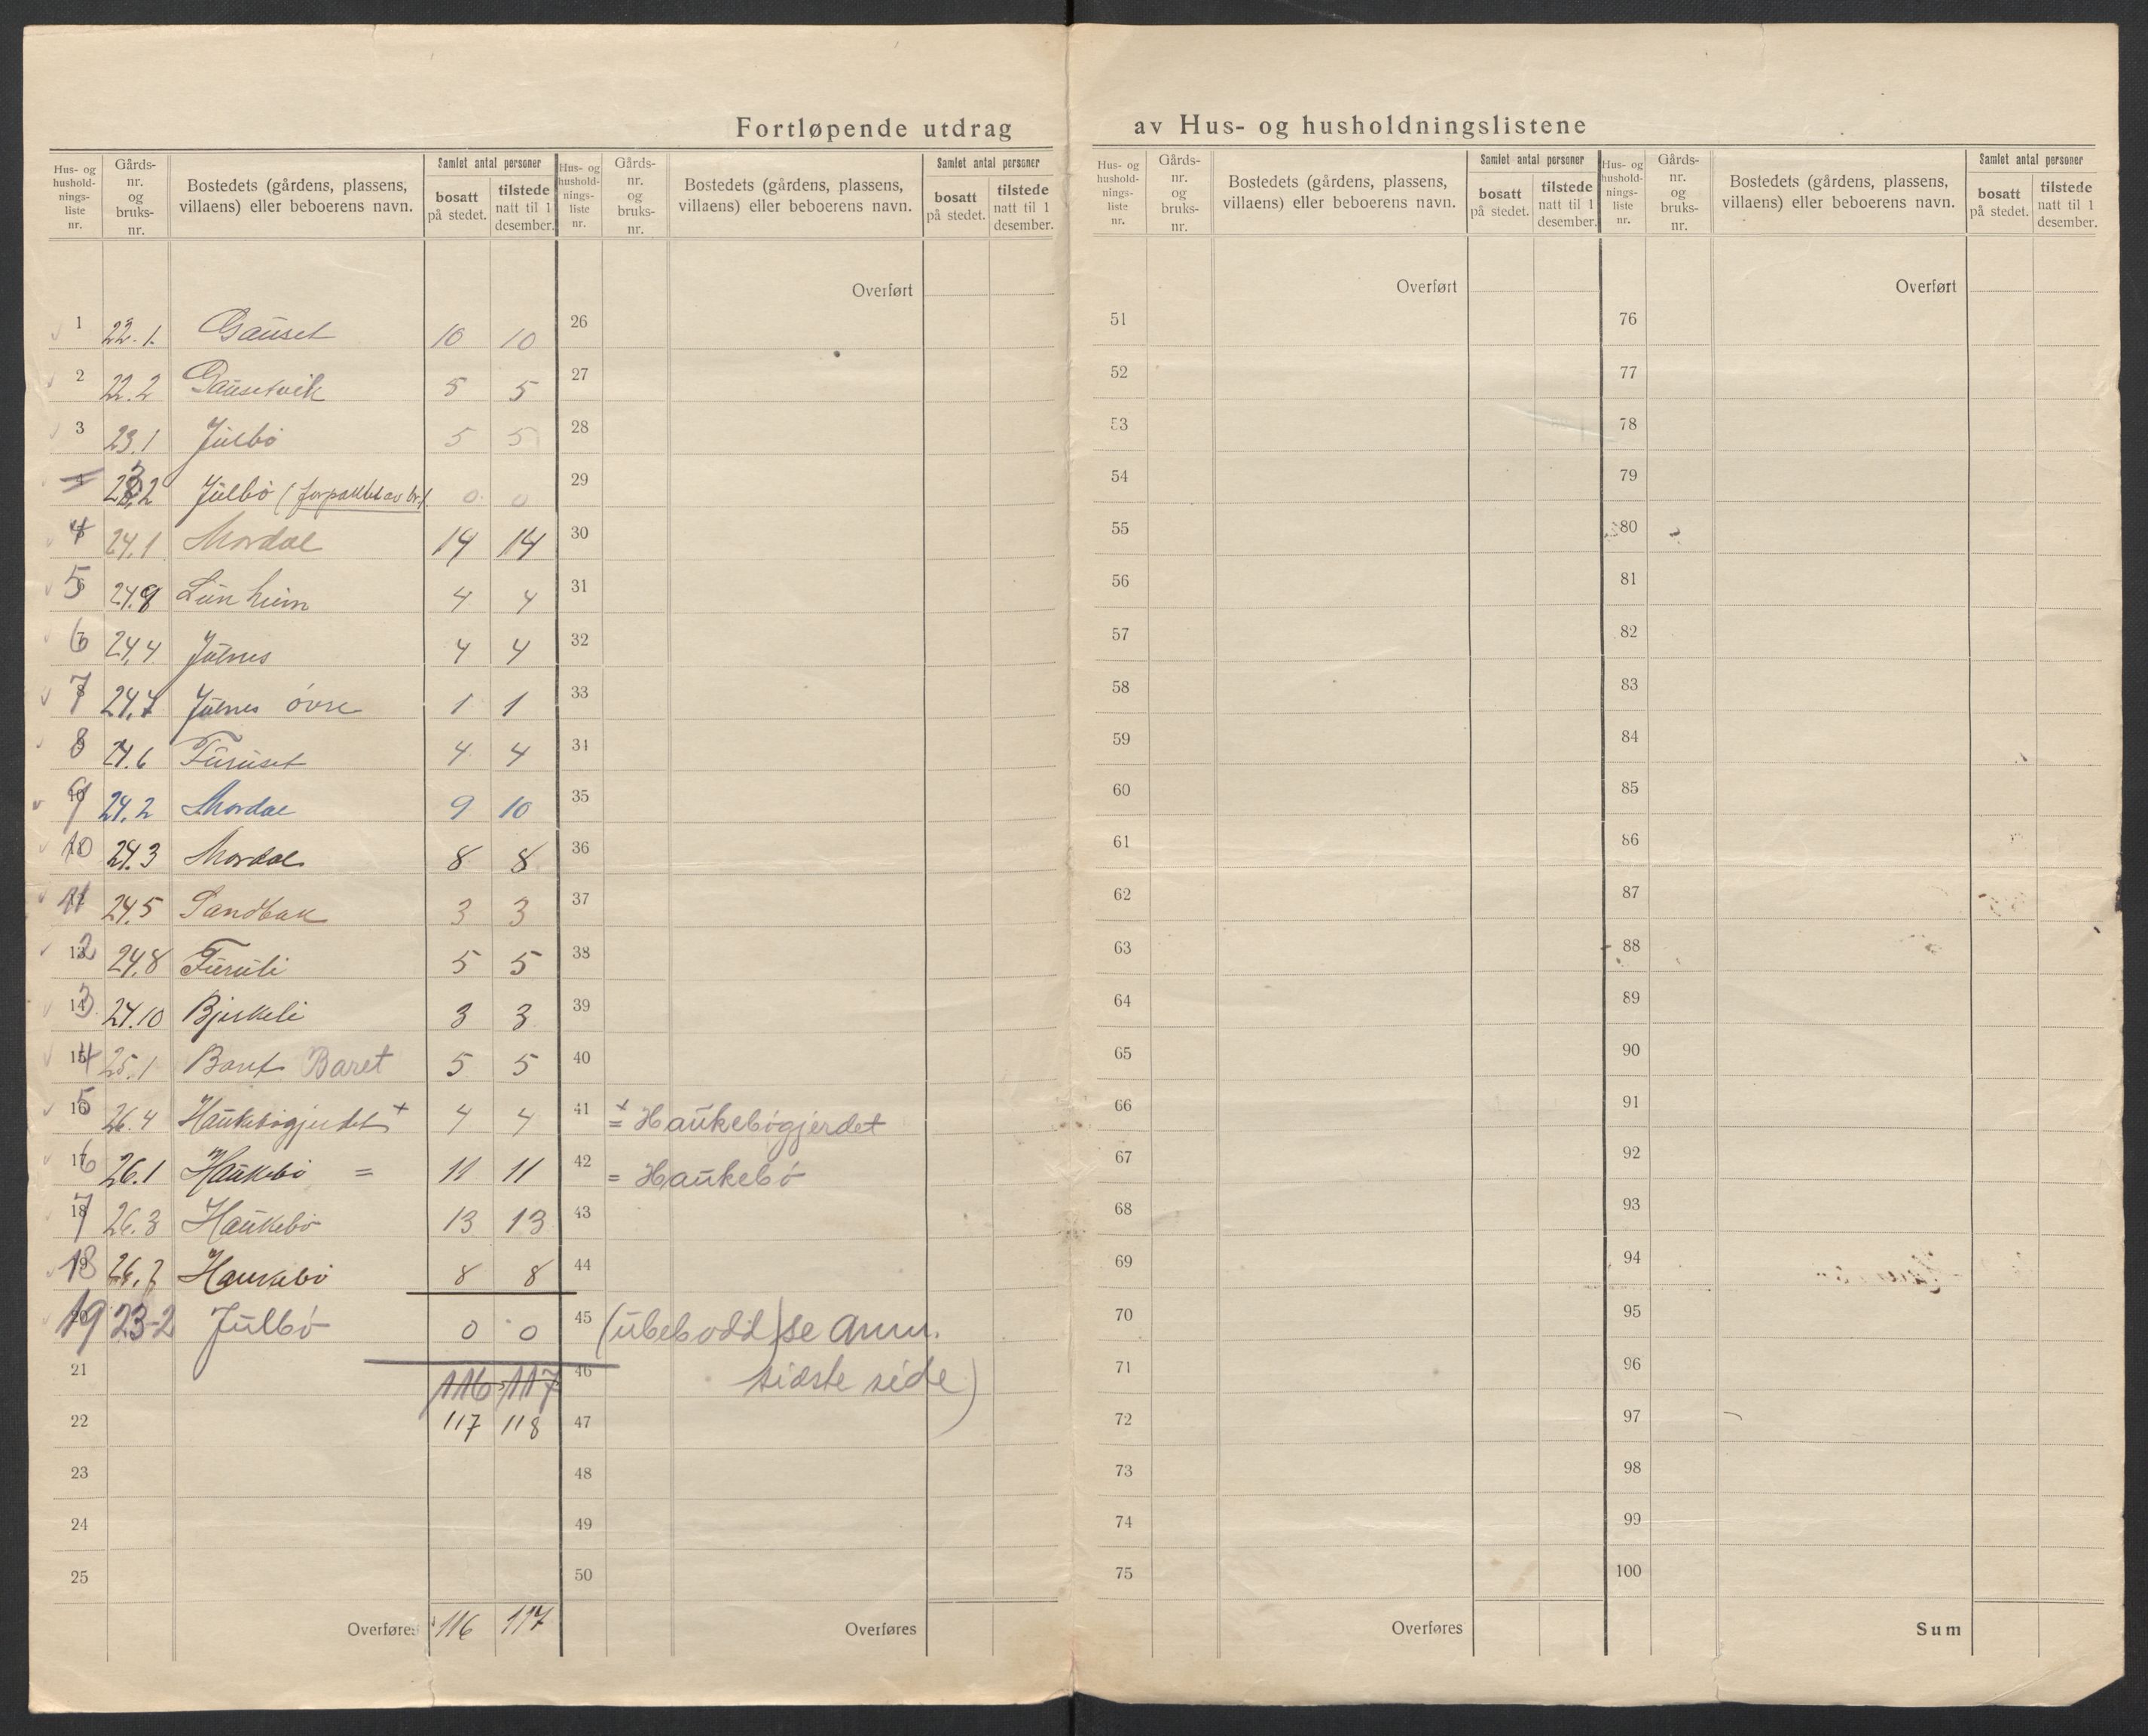 Fortløpende utdrag av Hus- og husholdningslistene
Hus- og husholdnings-liste nr. Gårds-nr. og bruks-nr. Bostedets (gårdens, plassens, villaens) eller beboerens navn. Samlet antal personer bosatt på stedet. tilstede natt til 1 desember.
Hus- og husholdnings-liste nr. Gårds-nr. og bruks-nr. Bostedets (gårdens, plassens, villaens) eller beboerens navn. Samlet antal personer bosatt på stedet. tilstede natt til 1 desember.
Hus- og husholdnings-liste nr. Gårds-nr. og bruks-nr. Bostedets (gårdens, plassens, villaens) eller beboerens navn. Samlet antal personer bosatt på stedet. tilstede natt til 1 desember.
Hus- og husholdnings-liste nr. Gårds-nr. og bruks-nr. Bostedets (gårdens, plassens, villaens) eller beboerens navn. Samlet antal personer bosatt på stedet. tilstede natt til 1 desember.
1 22.1. Gauset 10 10
2 22.2 Gausetvik 5 5
3 23.1 Julbö 5 5
4 23.2 Julbö (forpaktet av br.1 0 0
4 24.1 Mordal 14 14
5 24.9 Lunheim 4 4
6 24.4 Julnes 4 4
7 24.7 Julnes övre 1 1
8 24.6 Furuset 4 4
9 24.2 Mordal 9 10
10 24.3 Mordal 8 8
11 24.5 Sandbak 3 3
12 24.8 Furuli 5 5
13 24.10 Bjerkeli 3 3
14 25.1 Baret Baret 5 5
15 26.4 Haukebögjerdet + 4 4
16 26.1 Haukebö = 11 11
17 26.3 Haukebö 13 13
18 26.2 Haukebö 8 8
19 23-2 Julbö 0 0
21 116 117
22 117 118
23
24
25
Overføres 116 117
Overført
26
27
28
29
30
31
32
33
34
35
36
37
38
39
40
41 + = Haukebögjerdet
42 = Haukebö
43
44
45 (ubebodd) se anm.
46 sidste side)
47
48
49
50
Overføres
Overført
51
52
53
54
55
56
57
58
59
60
61
62
63
64
65
66
67
68
69
70
71
72
73
74
75
Overføres
Overført
76
77
78
79
80
81
82
83
84
85
86
87
88
89
90
91
92
93
94
95
96
97
98
99
100
Sum